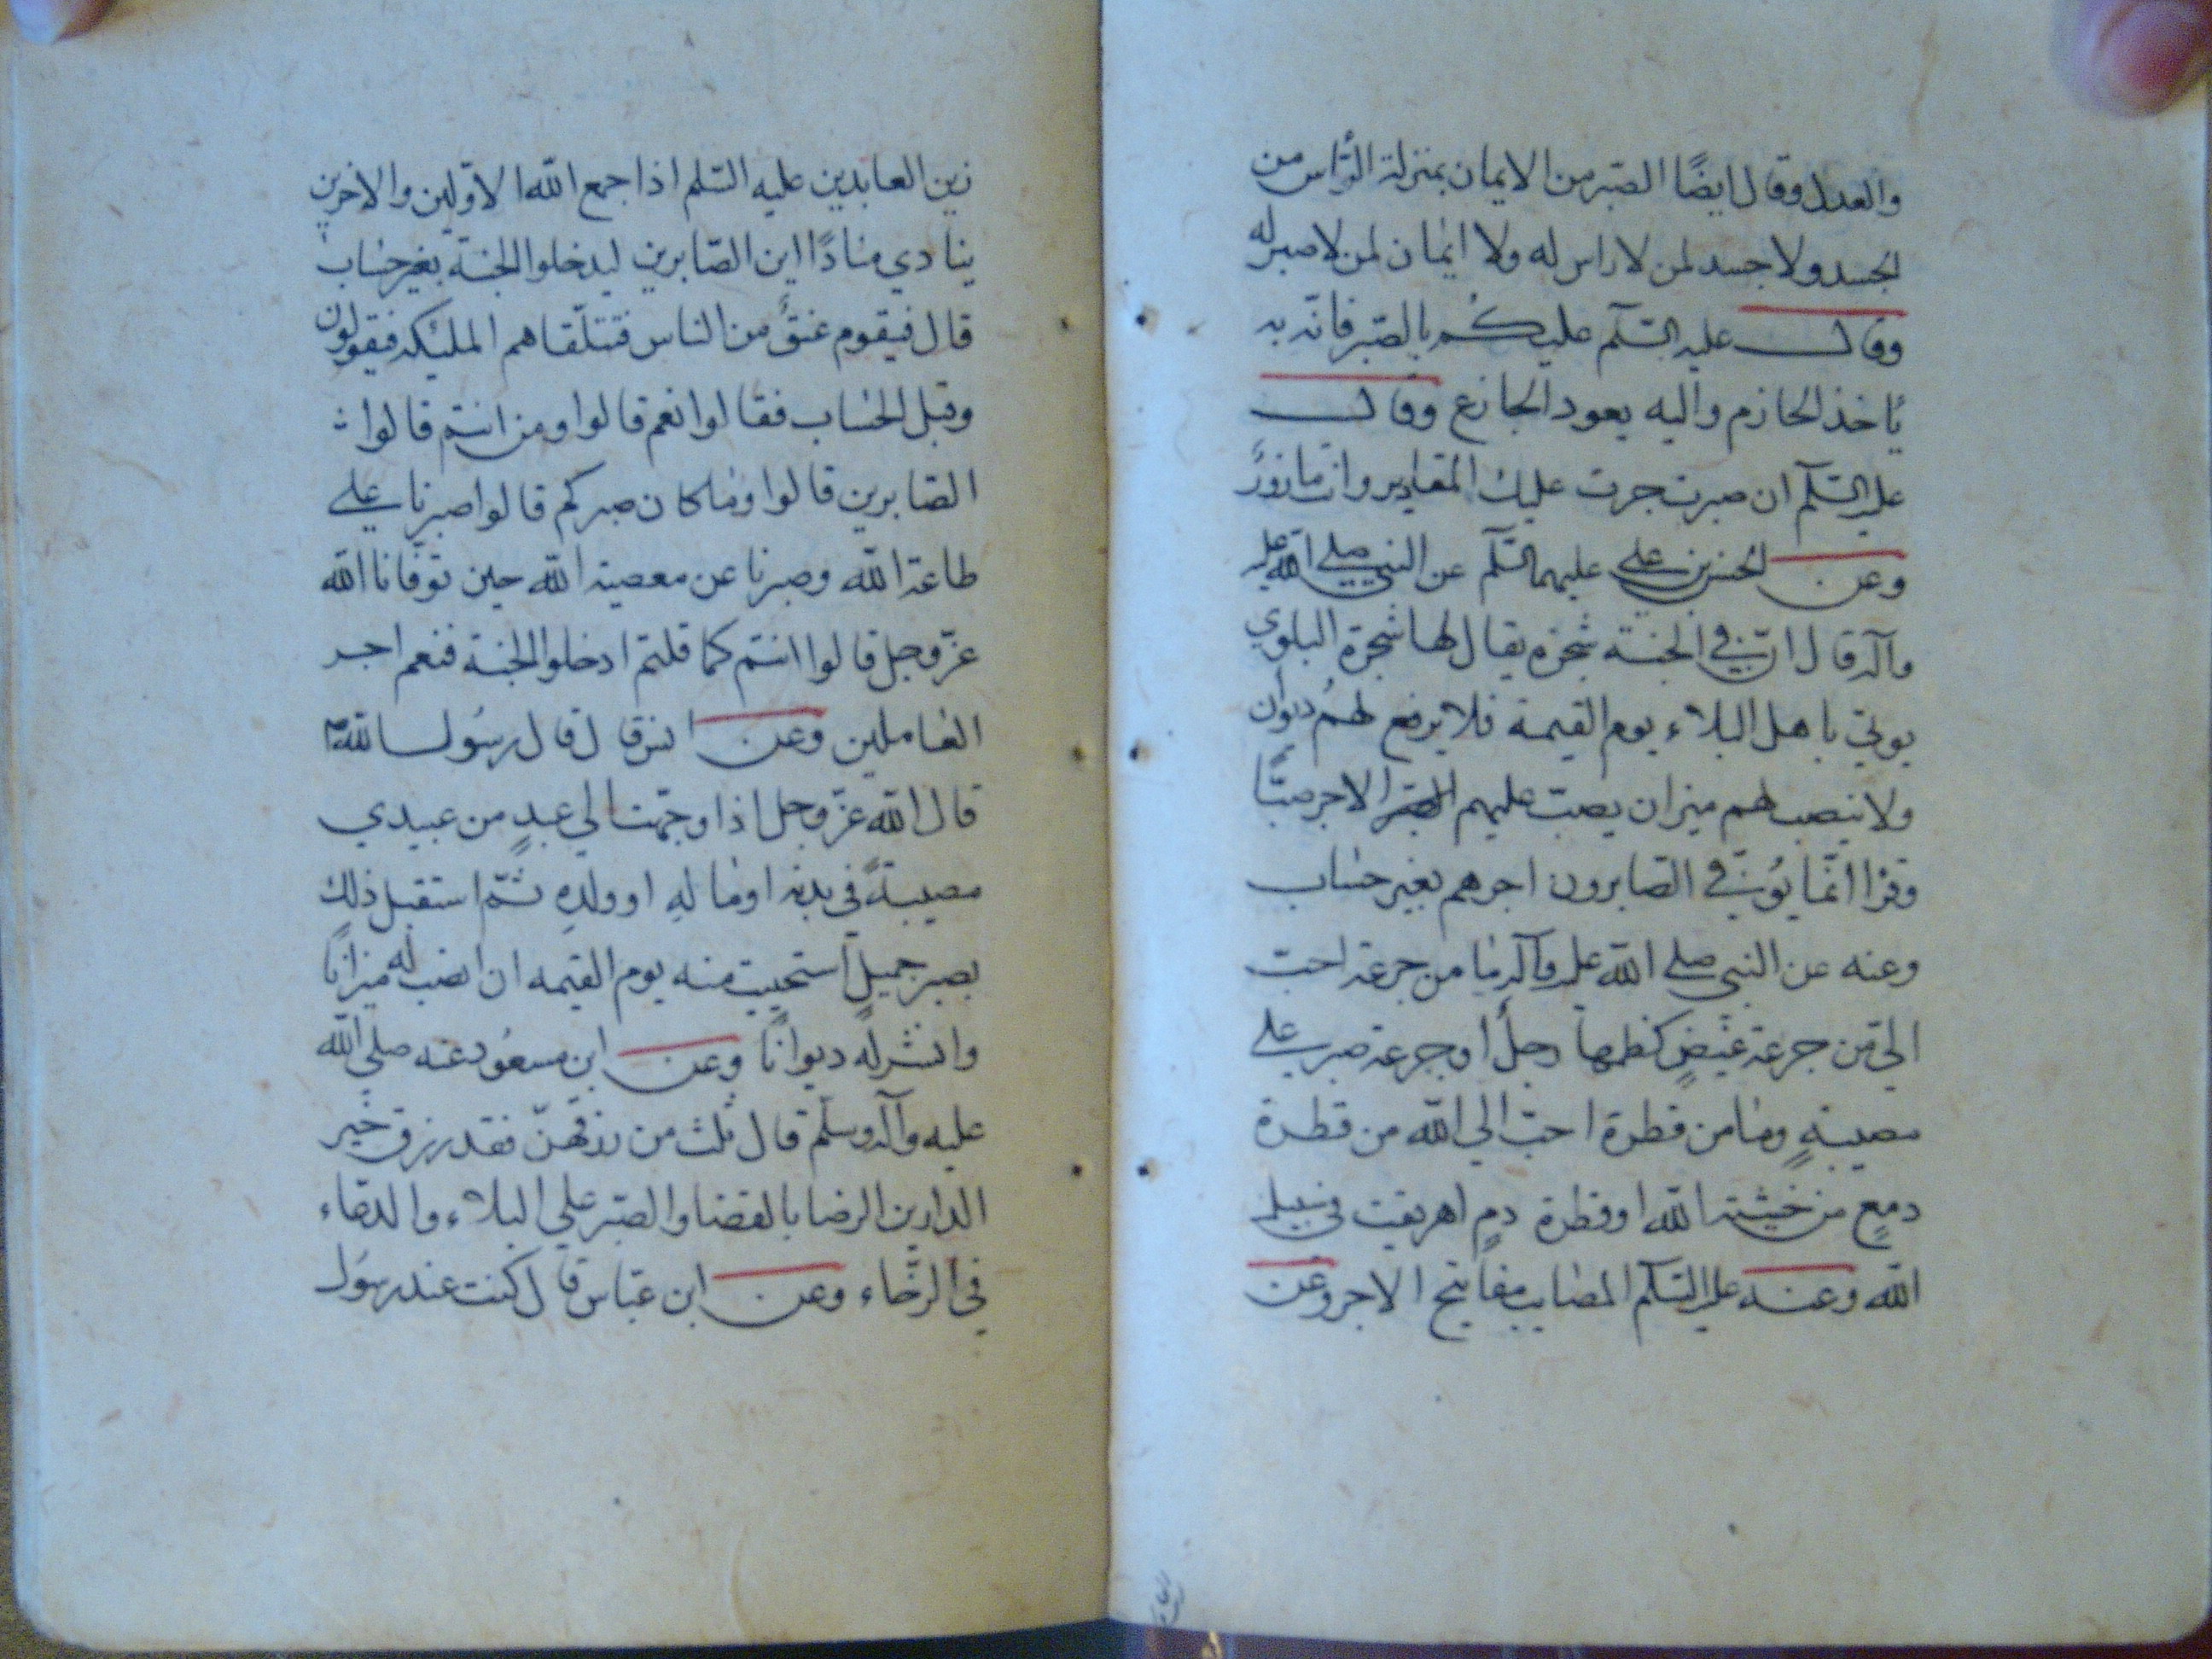 والعدل وقال ايضًا الصّبر من الايمان بمنزلة الرّأس من
الجسد ولا جسد لمن لا راس له ولا ايمان لمن لا صبر له
وقال عليه السّلم عليكُم بالصّبر فانّه به
ياخذ الحازم واليه يعود الجازع وقال
عليه السّلم ان صبرت جرت عليك المقادير وانت مازورٌ
وعن الحسن بن علي عليهما السّلم عن النبي صلي الله عليه
وآله قال انّ في الجنّة شجرة يقال لها شجرة البلوي
يوتي باهل البلاء يوم القيمة فلا يرفع لهُم ديوان
ولا ينصب لهم ميزان يصبّ عليهم الاجر صبًّا
وقرا انّما يُوفّي الصّابرون اجرهم بغير حساب
وعنه عن النبي صلي الله عليه وآله ما من جرعة احبّ
الي من جرعة غيضٍ كظمها رجلٌ او جرعة صبر علي
مصيبةٍ وما من قطرة احبّ الي الله من قطرة
دمعٍ من خشية الله او قطرة دمٍ اهريقت في سبيل
الله وعنه عليه السّلم المصايب مفاتيح الاجر وعن
زين العابدين عليه السّلم اذا جمع الله الاوّلين والاخرين
ينادي منادًا اين الصّابرين ليدخلوا الجنّة بغير حساب
قال فيقوم عنقٌ من الناس فتتلّقاهم المليكه فيقولون
وقبل الحساب فقالوا نعم قالوا ومن انتم قالوا
الصّابرين قالوا وما كان صبركم قالوا صبرنا علي
طاعة الله وصبرنا عن معصية الله حين توفّانا الله
عزّ وجل قالوا انتم كما قلتم ادخلوا الجنة فنعم اجر
العاملين وعن انس قال قال رسُول الله
قال الله عزّ وجل اذا وجّهت الي عبدٍ من عبيدي
مصيبةً في بدنه او مالهِ او ولدهِ ثمّ استقبل ذلك
بصبر جميلٍ استحييت منه يوم القيمه ان انصب له ميزانًا
وانشر له ديوانًا وعن ابن مسعُود عنه صلي الله
عليه وآله وسلّم قال ثلث من رزقهنّ فقد رزق خير
الدارين الرضا بالقضا والصّبر علي البلاء والدعاء
في الرخّاء وعن ابن عبّاس قال كنت عند رسُول